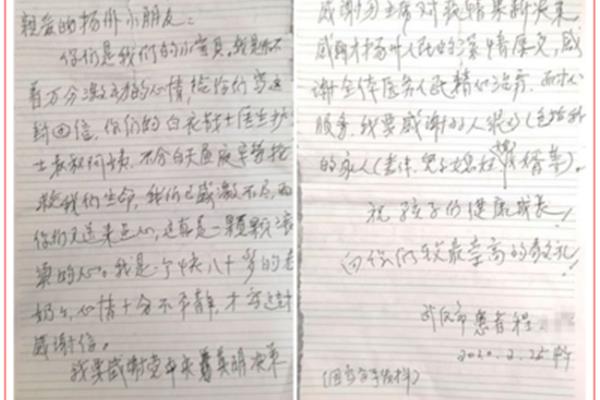 亲爱的扬州小朋友：
你们是我们的小宝贝，我是怀
着万分激动的心情，给你们写这
封回信，你们的白衣战士医生护
士叔叔阿姨，不分白天黑夜辛苦抢
救我们生命，我们已感激不尽，而
你们又送来爱心，这真是一颗颗滚
烫的心。我是一个快八十岁的老
奶奶，心情十分不平静，才写这封
感谢信。
我要感谢党中央英明决策
感谢 主席对疫情果断决策
感谢扬州人民的深情厚意，感
谢全体医务人员精心治疗，耐心
服务，我要感谢的人很多（包括我
的家人（老伴、儿子媳妇、女婿等）。
祝孩子们健康成长！
向你们致最崇高的敬礼！
武汉市患者程
2020.2.25